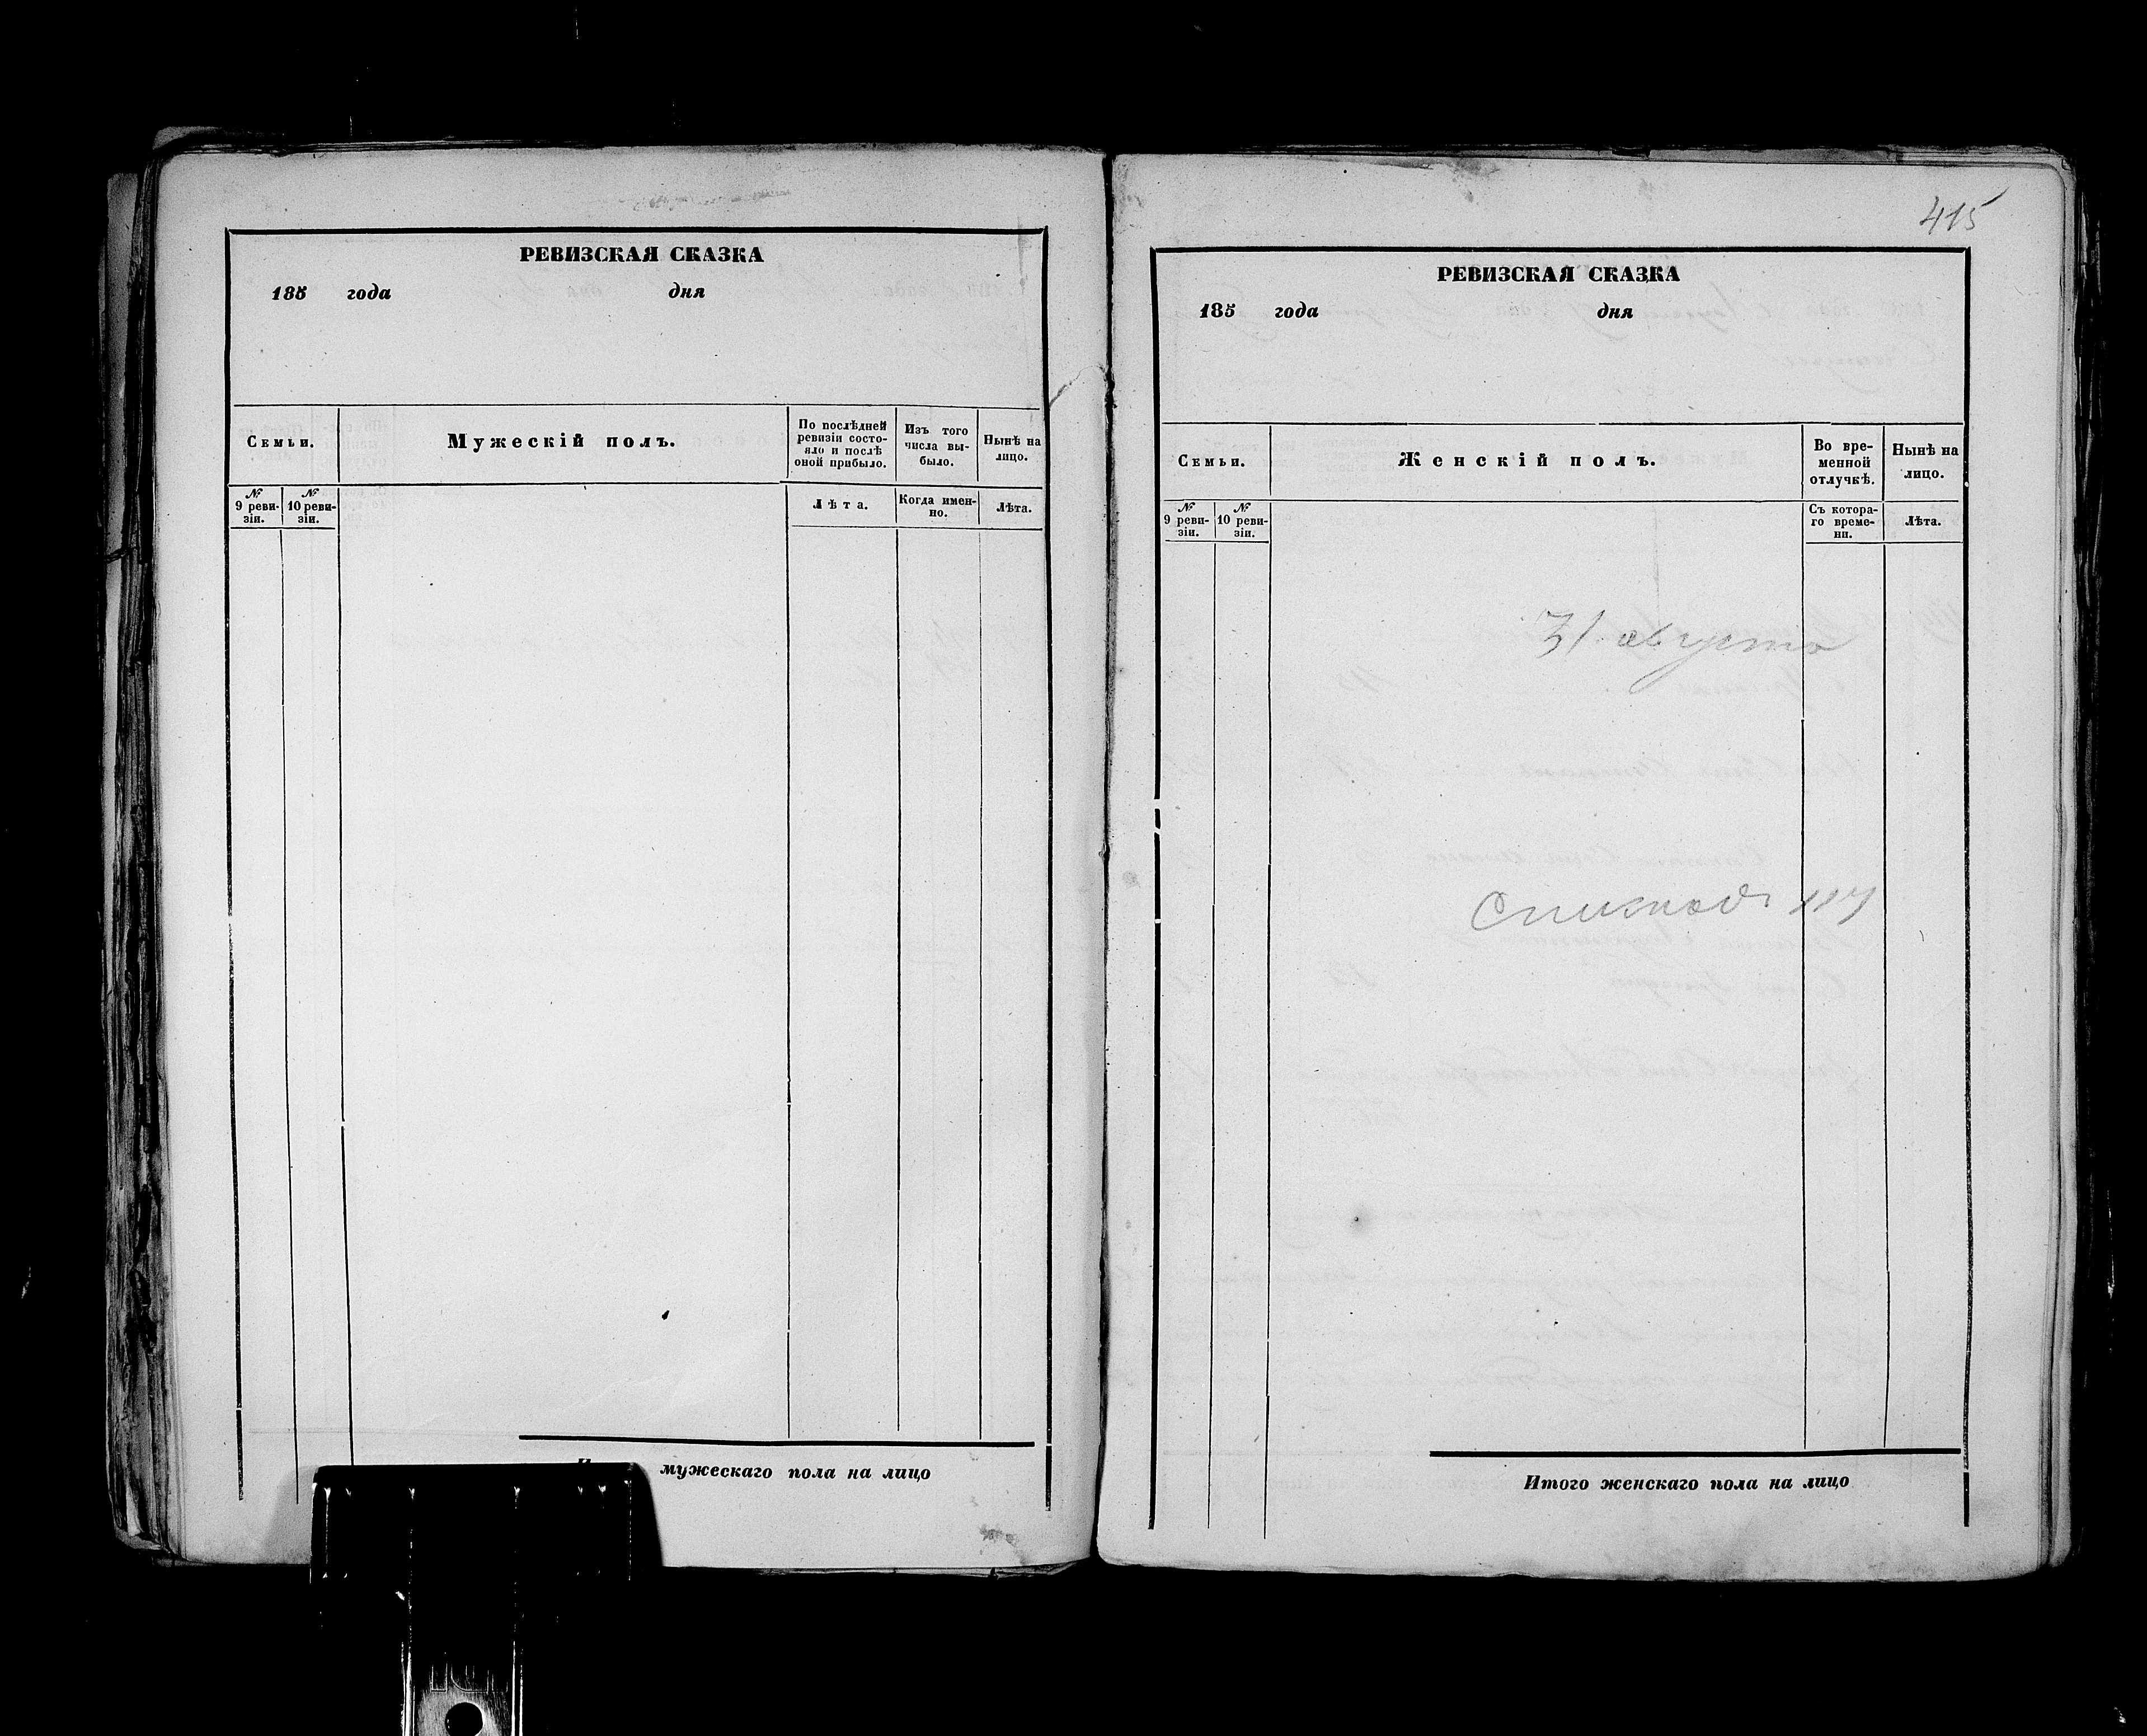 РЕВИЗСКАЯ СКАЗКА
185 года дня
Семьи.
Мужескій полъ.
По послѣдней
ревизіи состо-
яло и послѣ
оной прибыло.
Изъ того
числа вы-
было.
Нынѣ на
лицо.
№
9 реви-
зіи.
№
10 реви-
зіи.
Лѣта.
Когда имен-
но.
Лѣта.
мужескаго пола на лицо
415
РЕВИЗСКАЯ СКАЗКА
185 года дня
Семьи.
Женскій полъ.
Во вре-
менной
отлучкѣ.
Нынѣ на
лицо.
№
9 реви-
зіи.
№
10 реви-
зіи.
Съ котора-
го време-
ни.
Лѣта.
31. августа
Итого женскаго пола на лицо